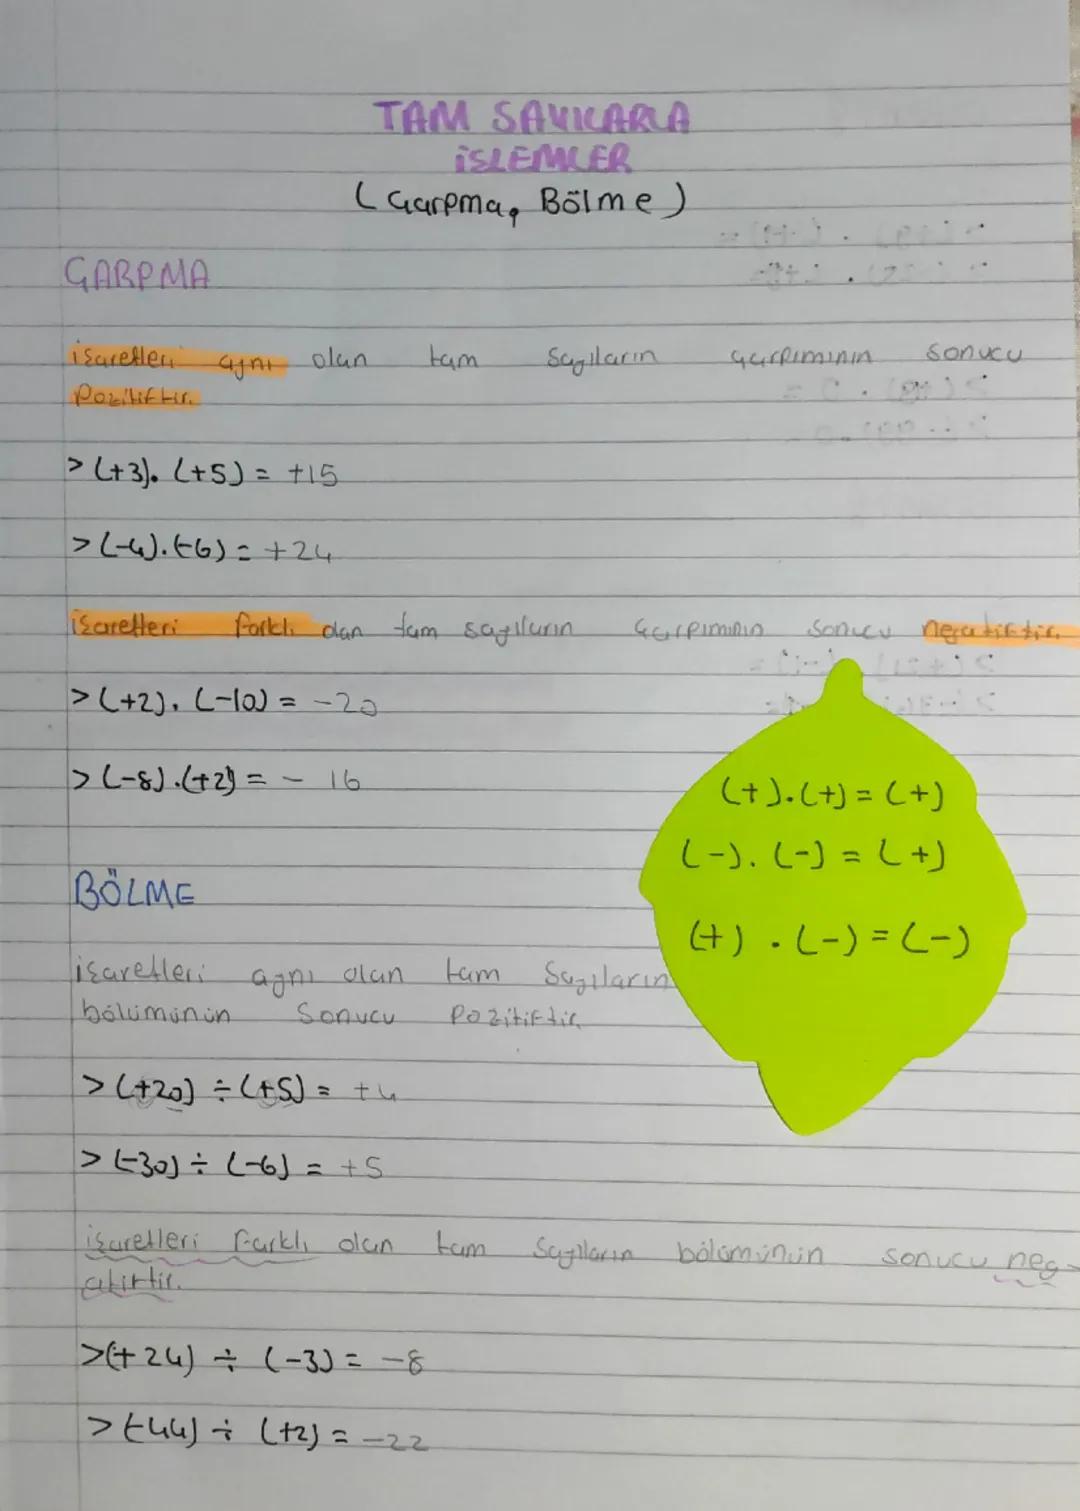 TAM SAYILARLA
İŞLEMLER
(Çarpma, Bölme)
ÇARPMA
işaretleri aynı olan tam sayıların çarpımının sonucu
pozitiftir.
> (+3). (+5) = +15
> (-4).(-6) = +24
işaretleri farklı olan tam sayıların çarpımının sonucu negatiftir.
> (+2). (-10) = -20
> (-8).(+2) = - 16
(+).(+) = (+)
(-). (-) = (+)
(+) . (-) = (-)
BÖLME
işaretleri aynı olan tam sayıların
bölümünün sonucu pozitiftir.
> (+20) ÷ (+5) = +4
> (-30) ÷ (-6) = +5
işaretleri farklı olan tam sayıların bölümünün sonucu neg-
atiftir.
> (+24) ÷ (-3) = -8
> (-44) ÷ (+2) = -22